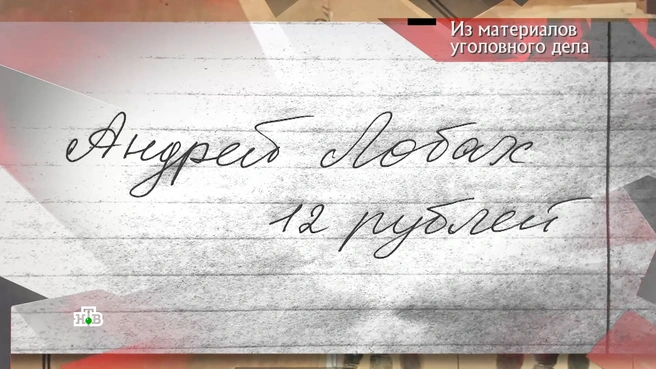 Из материалов
уголовного дела
Андрей Лобах
12 рублей
НТВ